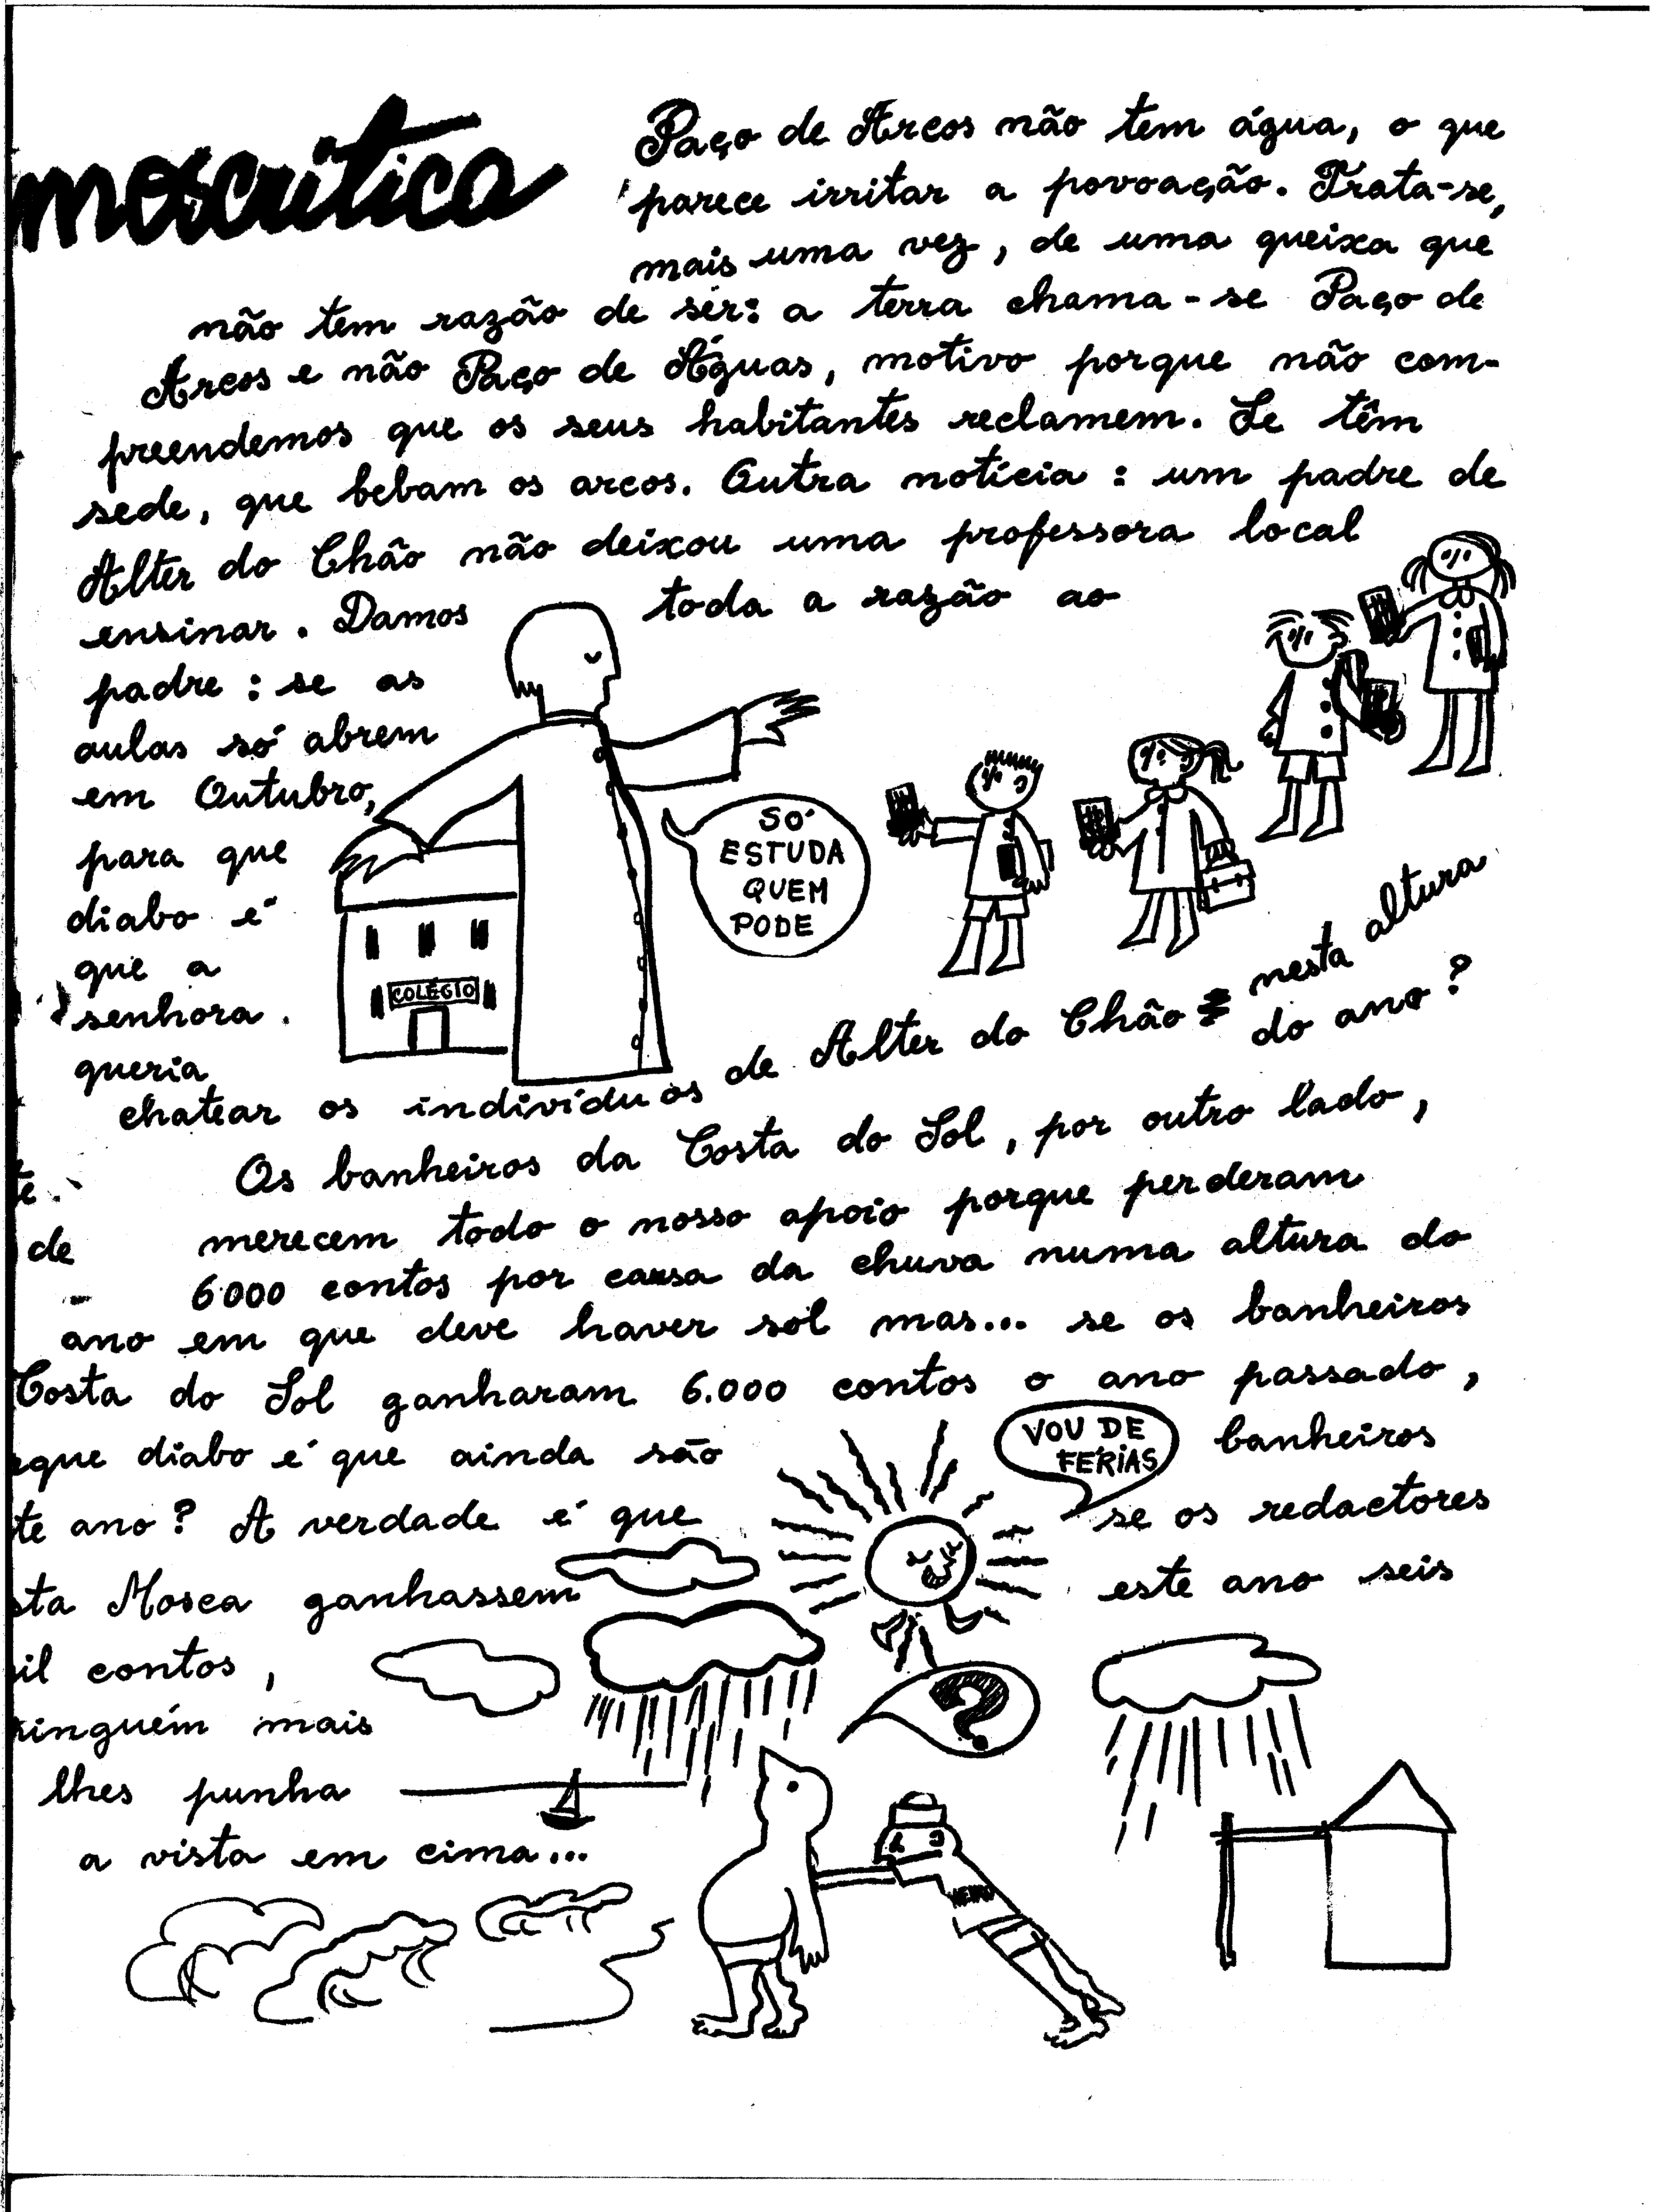 moscrítica
Paço de Arcos não tem água, o que
parece irritar a povoação. Trata-se,
mais uma vez, de uma queixa que
não tem razão de ser: a terra chama-se Paço de
Arcos e não Paço de Águas, motivo porque não com-
preendemos que os seus habitantes reclamem. Se têm
sede, que bebam os arcos. Outra notícia: um padre de
Alter do Chão não deixou uma professora local
ensinar. Damos toda a razão ao
padre: se as
aulas só abrem
em Outubro,
para que
diabo é
que a
senhora
queria
chatear os indivíduos de Alter do Chão nesta altura
do ano?
SÓ
ESTUDA
QUEM
PODE
COLÉGIO
Os banheiros da Costa do Sol, por outro lado,
te.
merecem todo o nosso apoio porque perderam
de
6000 contos por causa da chuva numa altura do
ano em que deve haver sol mas... se os banheiros
Costa do Sol ganharam 6.000 contos o ano passado,
que diabo é que ainda são banheiros
te ano? A verdade é que se os redactores
sta Mosca ganhassem este ano seis
il contos,
ninguém mais
lhes punha
a vista em cima...
VOU DE
FÉRIAS
?